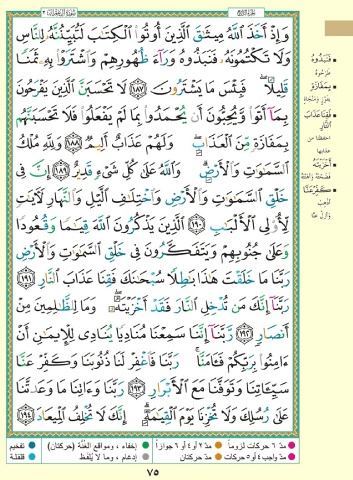 سورة آل عمران ٣
الجزء الرابع
وَإِذْ أَخَذَ ٱللَّهُ مِيثَٰقَ ٱلَّذِينَ أُوتُوا۟ ٱلْكِتَٰبَ لَتُبَيِّنُنَّهُۥ لِلنَّاسِ
وَلَا تَكْتُمُونَهُۥ فَنَبَذُوهُ وَرَآءَ ظُهُورِهِمْ وَٱشْتَرَوْا۟ بِهِۦ ثَمَنًا
قَلِيلًا ۖ فَبِئْسَ مَا يَشْتَرُونَ ﴿١٨٧﴾ لَا تَحْسَبَنَّ ٱلَّذِينَ يَفْرَحُونَ
بِمَآ أَتَوا۟ وَّيُحِبُّونَ أَن يُحْمَدُوا۟ بِمَا لَمْ يَفْعَلُوا۟ فَلَا تَحْسَبَنَّهُم
بِمَفَازَةٍ مِّنَ ٱلْعَذَابِ ۖ وَلَهُمْ عَذَابٌ أَلِيمٌ ﴿١٨٨﴾ وَلِلَّهِ مُلْكُ
ٱلسَّمَٰوَٰتِ وَٱلْأَرْضِ ۗ وَٱللَّهُ عَلَىٰ كُلِّ شَىْءٍ قَدِيرٌ ﴿١٨٩﴾ إِنَّ فِى
خَلْقِ ٱلسَّمَٰوَٰتِ وَٱلْأَرْضِ وَٱخْتِلَٰفِ ٱلَّيْلِ وَٱلنَّهَارِ لَءَايَٰتٍ
لِّأُو۟لِى ٱلْأَلْبَٰبِ ﴿١٩٠﴾ ٱلَّذِينَ يَذْكُرُونَ ٱللَّهَ قِيَٰمًا وَقُعُودًا
وَعَلَىٰ جُنُوبِهِمْ وَيَتَفَكَّرُونَ فِى خَلْقِ ٱلسَّمَٰوَٰتِ وَٱلْأَرْضِ
رَبَّنَا مَا خَلَقْتَ هَٰذَا بَٰطِلًا سُبْحَٰنَكَ فَقِنَا عَذَابَ ٱلنَّارِ ﴿١٩١﴾
رَبَّنَآ إِنَّكَ مَن تُدْخِلِ ٱلنَّارَ فَقَدْ أَخْزَيْتَهُۥ ۖ وَمَا لِلظَّٰلِمِينَ مِنْ
أَنصَارٍ ﴿١٩٢﴾ رَّبَّنَآ إِنَّنَا سَمِعْنَا مُنَادِيًا يُنَادِى لِلْإِيمَٰنِ أَنْ
ءَامِنُوا۟ بِرَبِّكُمْ فَـَٔامَنَّا ۚ رَبَّنَا فَٱغْفِرْ لَنَا ذُنُوبَنَا وَكَفِّرْ عَنَّا
سَيِّـَٔاتِنَا وَتَوَفَّنَا مَعَ ٱلْأَبْرَارِ ﴿١٩٣﴾ رَبَّنَا وَءَاتِنَا مَا وَعَدتَّنَا
عَلَىٰ رُسُلِكَ وَلَا تُخْزِنَا يَوْمَ ٱلْقِيَٰمَةِ ۗ إِنَّكَ لَا تُخْلِفُ ٱلْمِيعَادَ ﴿١٩٤﴾
فَنَبَذُوهُ
طرحوه
بِمَفَازَةٍ
فَقِنَا عَذَابَ
النَّارِ
أَخْزَيْتَهُ
كَفِّرْ عَنَّا
مدّ ٦ حركات لزوماً
مدّ ٢ أو ٤ أو ٦ جوازاً
إخفاء، ومواقع الغُنَّة (حركتان)
تفخيم
مدّ واجب ٤ أو ٥ حركات
مدّ حركتان
إدغام، وما لا يُلفَظ
قلقلة
٧٥